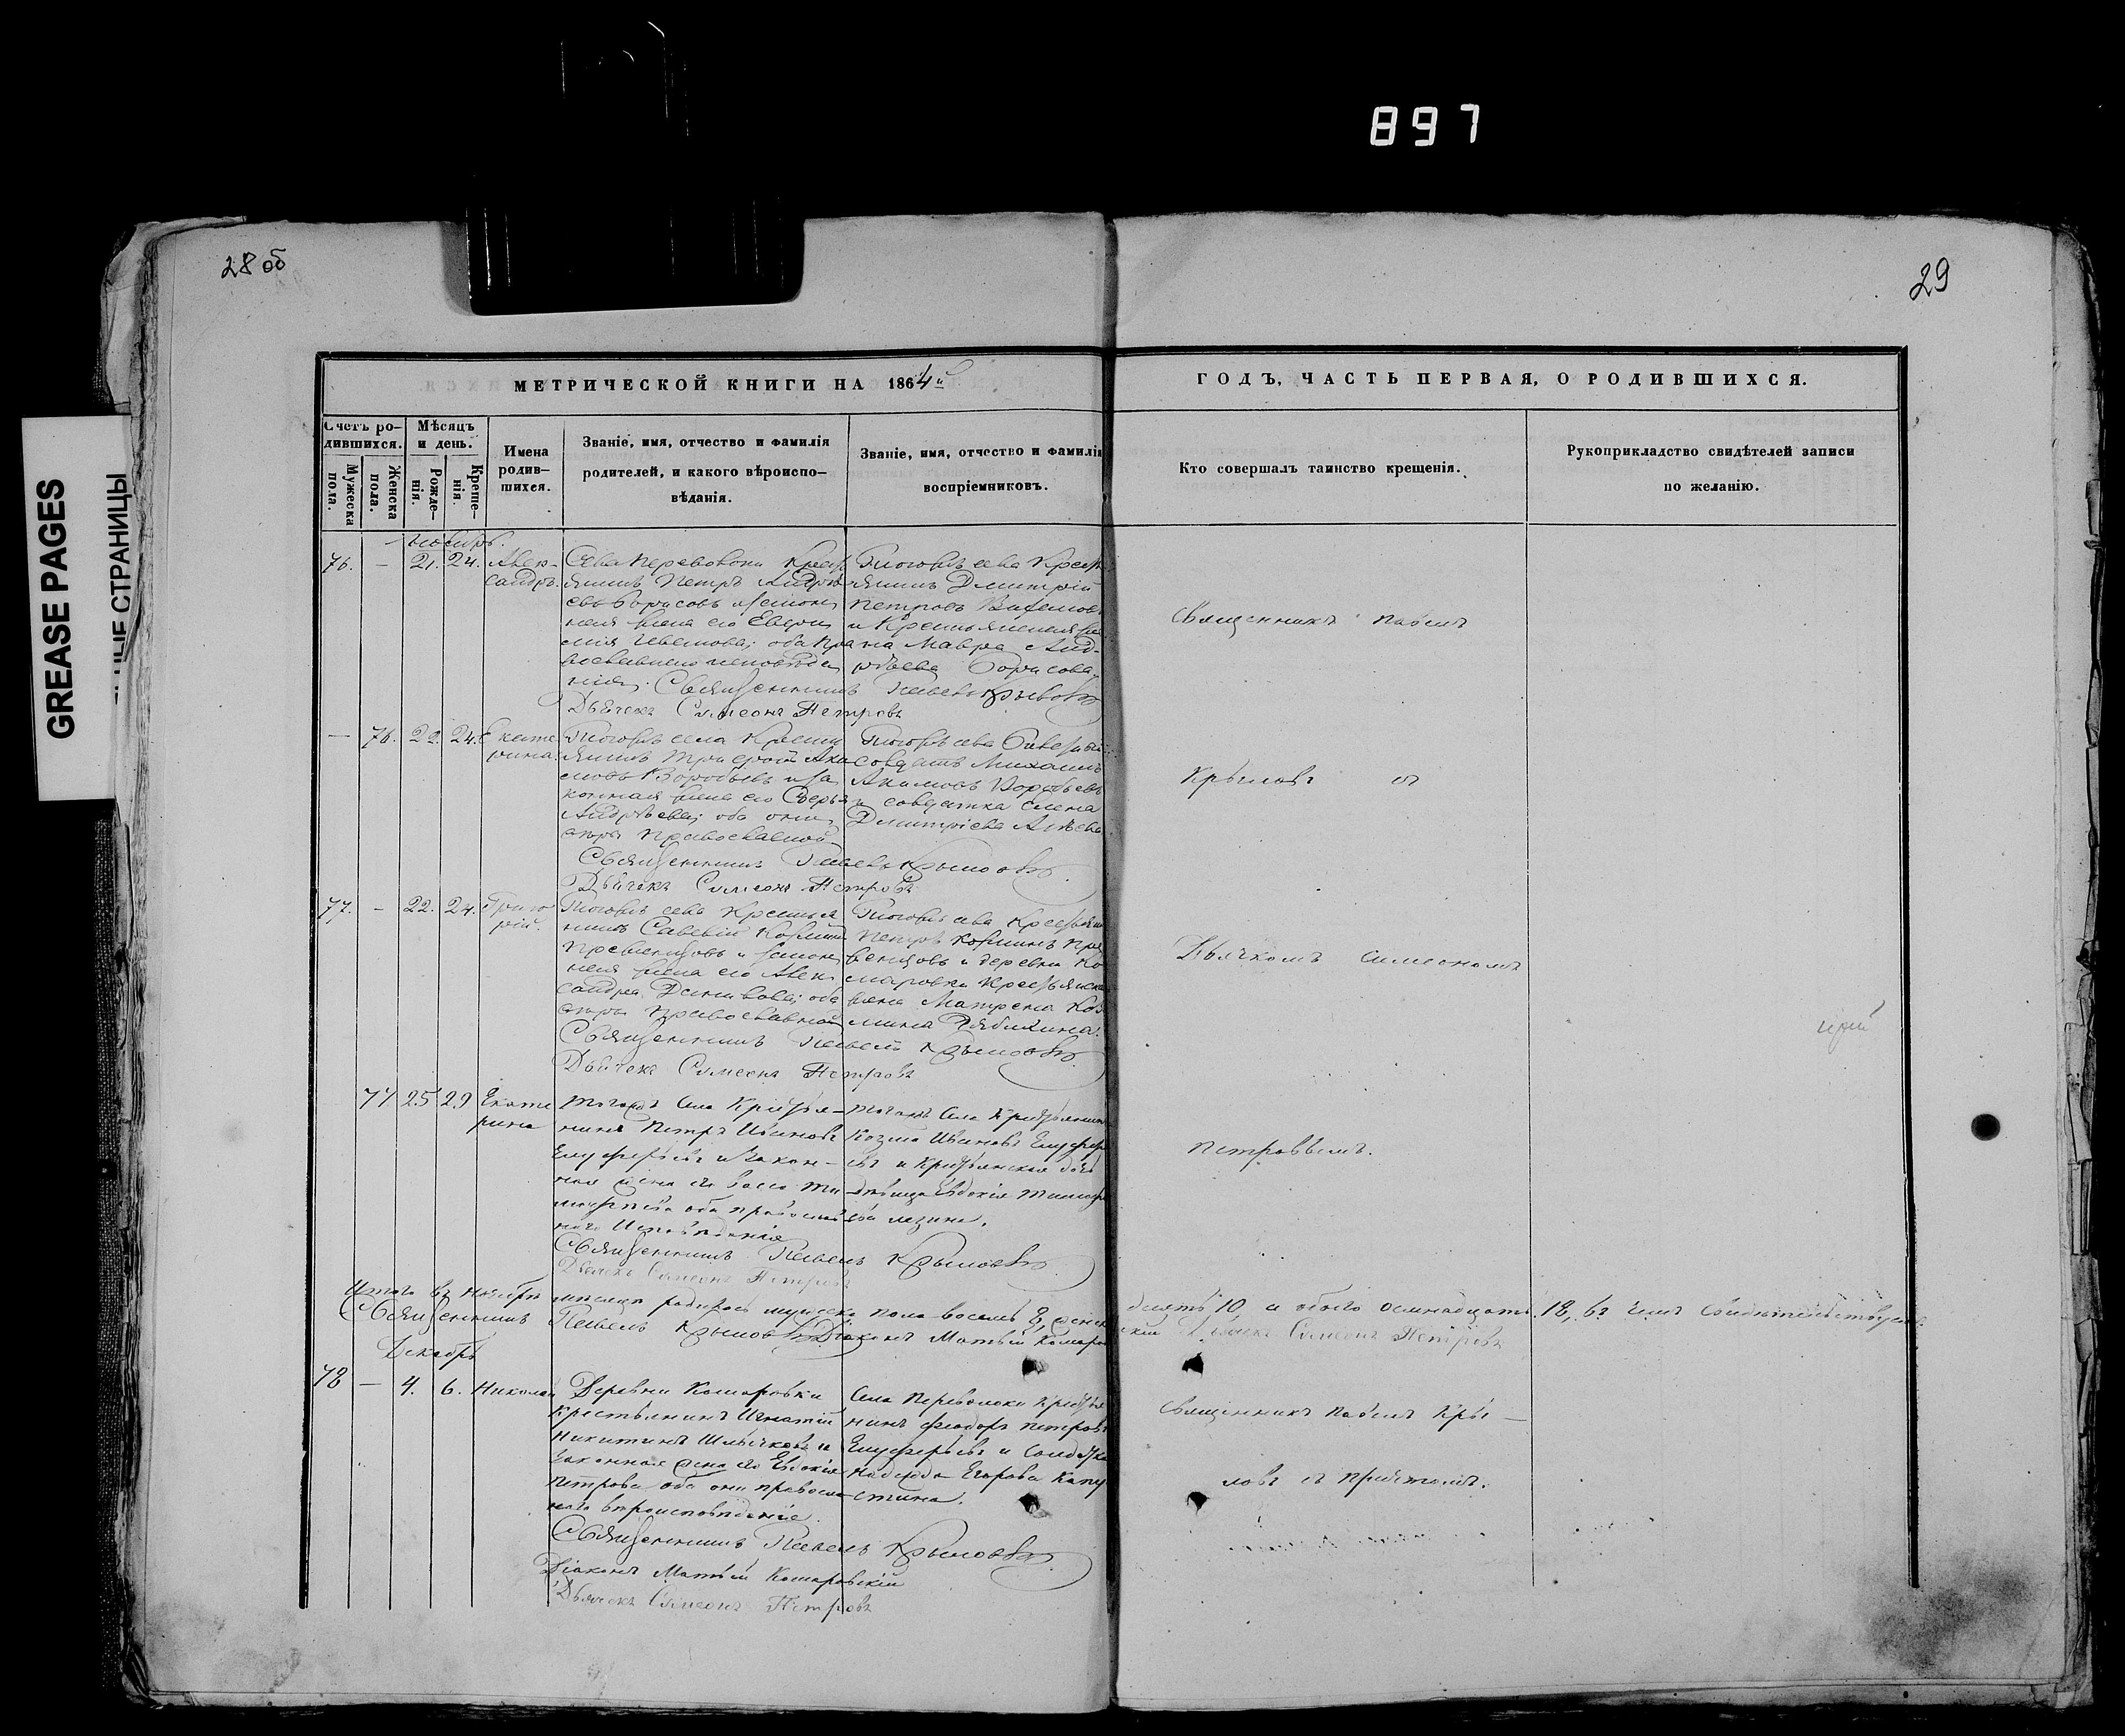 897
28 об
29
GREASE PAGES
СТРАНИЦЫ
МЕТРИЧЕСКОЙ КНИГИ НА 1864й
ГОДЪ, ЧАСТЬ ПЕРВАЯ, О РОДИВШИХСЯ.
Счетъ ро-
дившихся.
Мужеска
пола.
Женска
пола.
Мѣсяцъ
и день.
Рожде-
нія.
Креще-
нія.
Имена
родив-
шихся.
Званіе, имя, отчество и фамилія
родителей, и какого вѣроиспо-
вѣданія.
Званіе, имя, отчество и фамилія
воспріемниковъ.
Кто совершалъ таинство крещенія.
Рукоприкладство свидѣтелей записи
по желанію.
Ноябрь.
76. - 21. 24. Алек-
сандръ.
Села Переволоки Крест
янинъ Петръ Андре
евъ Борисовъ и закон
ная жена его
оба пра
вославнаго исповѣда
нія. Священникъ Павелъ Крыловъ
Дьячекъ Симеонъ Петровъ
Тогожъ села Крест
янинъ Дмитрій
Петровъ
и Крестьянская же
на Мавра Анд-
рѣева Борисова.
Священникъ Павелъ
— 76. 22. 24. Екате
рина.
Тогожъ села Крестья
янинъ Трифонъ Аки
мовъ Воробьевъ и за
конная жена его
Андрѣева; оба они
вѣры православной
Священникъ Павелъ Крыловъ
Дьячекъ Симеонъ Петровъ
Тогожъ села
солдатъ Михаилъ
Акимовъ Воробьевъ
и солдатка Елена
Дмитріева
Крыловъ съ
77. - 22. 24. Григо
рій.
Тогожъ села Крестья
нинъ Савелій Козминъ
и закон
ная жена его Алек
сандра Данилова; оба
вѣры православной
Священникъ Павелъ Крыловъ
Дьячекъ Симеонъ Петровъ
Тогожъ села Крестьянинъ
Петръ Козминъ
и деревни Ко
маровки Крестьянска
жена Матрена Коз
мина
Дьячкомъ Симеономъ
77 25 29 Екате
рина
Тогожъ Села Крестья-
нинъ Петръ Ивановъ
Елуферьевъ и Закон-
ная жена его Ти
мофеева оба православ
наго Исповѣданія
Священникъ Павелъ Крыловъ
Дьячекъ Симеонъ Петровъ
Тогожъ Села Крестьянинъ
Козма Ивановъ Елуферь
евъ и Крестьянская дочь
дѣвица Евдокія Тимофе
ева
Петровымъ.
Итого въ Ноябрѣ мѣсяцѣ родилось мужеска пола восемь 8, женск десять 10, а обоего осмнадцать 18, въ чемъ свидѣтельствуемъ
Священникъ Павелъ Крыловъ Діаконъ Матвѣй Комаровскій Дьячекъ Симеонъ Петровъ
Декабрь
78 — 4. 6. Николай
Деревни Комаровки
Крестьянинъ Игнатій
Никитинъ и
Законная жена его Евдокія
Петрова оба они православ
наго вѣроисповѣданія.
Священникъ Павелъ Крыловъ
Діаконъ Матвѣй Комаровскій
Дьячекъ Симеонъ Петровъ
Села Переволоки Крестья
нинъ Феодоръ Петровъ
Елуферьевъ и Солдатка
Надежда Егорова Капу
стина.
Священникъ Павелъ Кры —
ловъ съ причтомъ.